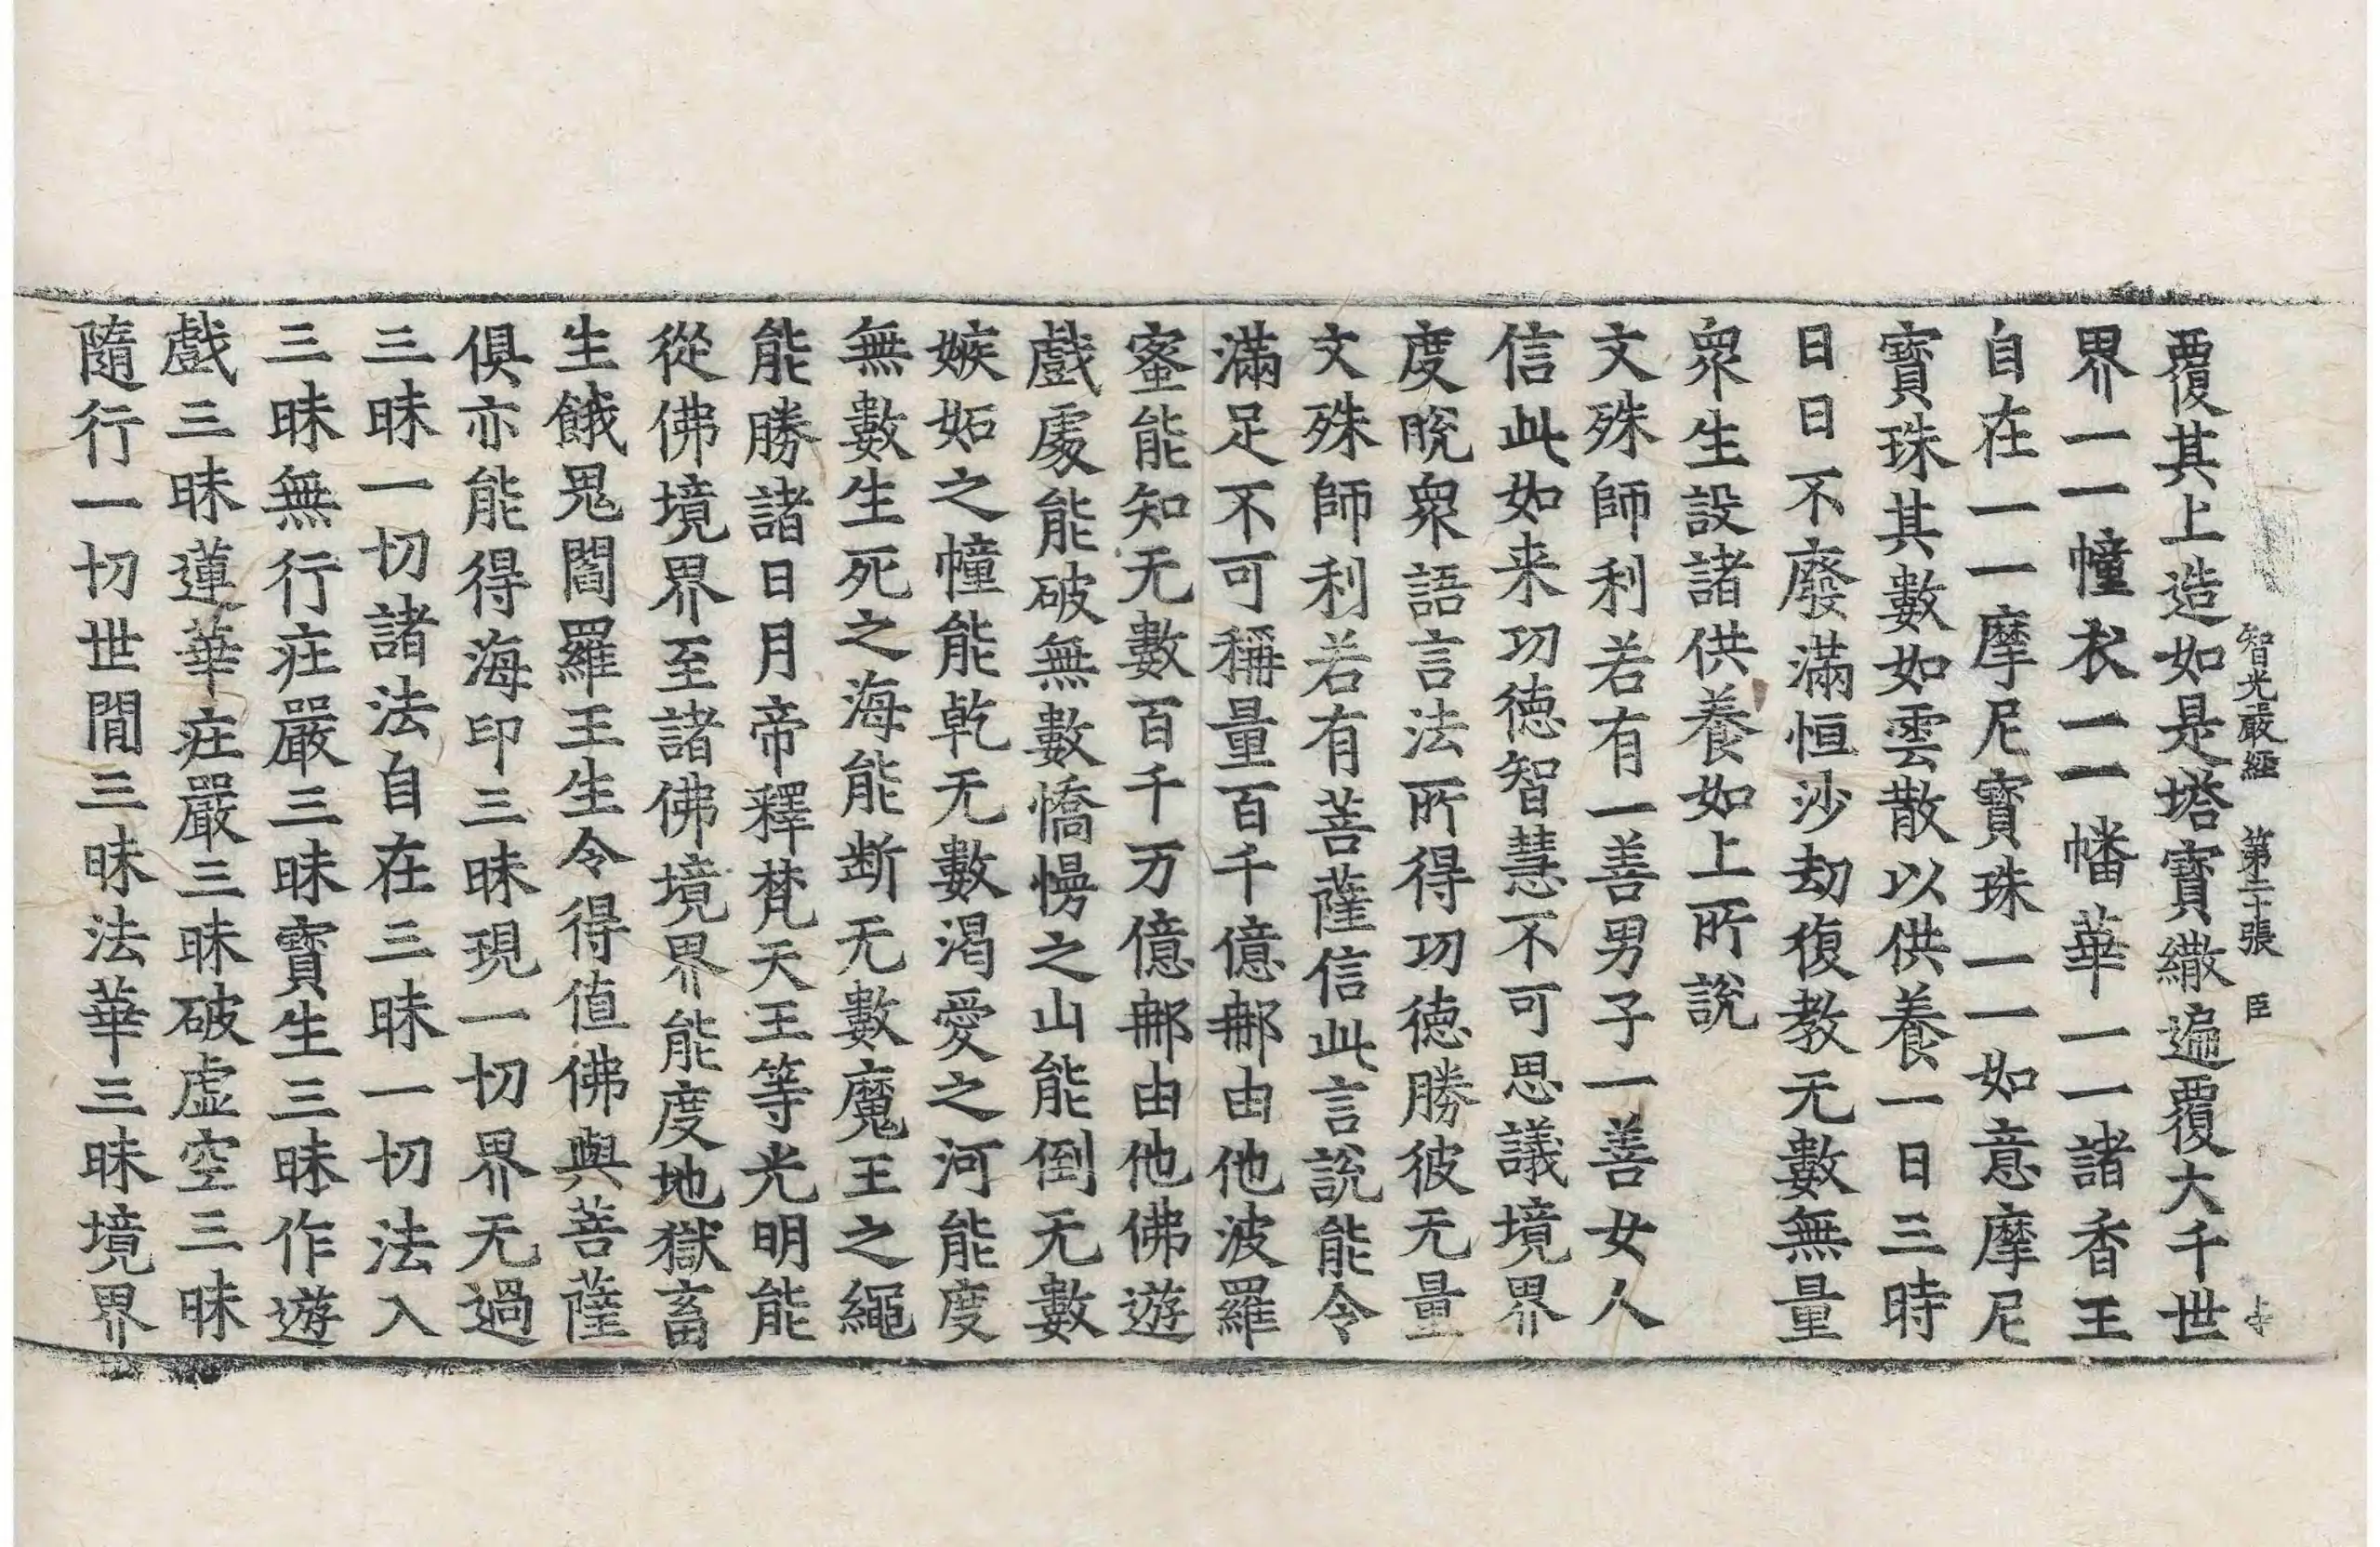 智光嚴經 第二十張 臣
覆其上造如是塔寶繖遍覆大千世
界一一幢衣一一幡華一一諸香王
自在一一摩尼寶珠一一如意摩尼
寶珠其數如雲散以供養一日三時
日日不廢滿恒沙劫復教无數無量
衆生設諸供養如上所說
文殊師利若有一善男子一善女人
信此如来功德智慧不可思議境界
度脫衆語言法所得功德勝彼无量
文殊師利若有菩薩信此言說能令
滿足不可稱量百千億那由他波羅
蜜能知无數百千万億那由他佛遊
戲處能破無數憍慢之山能倒无數
嫉妬之幢能乾无數渴愛之河能度
無數生死之海能断无數魔王之繩
能勝諸日月帝釋梵天王等光明能
從佛境界至諸佛境界能度地獄畜
生餓鬼閻羅王生令得值佛與菩薩
俱亦能得海印三昧現一切界无過
三昧一切諸法自在三昧一切法入
三昧無行庄嚴三昧寶生三昧作遊
戲三昧蓮華庄嚴三昧破虛空三昧
隨行一切世間三昧法華三昧境界